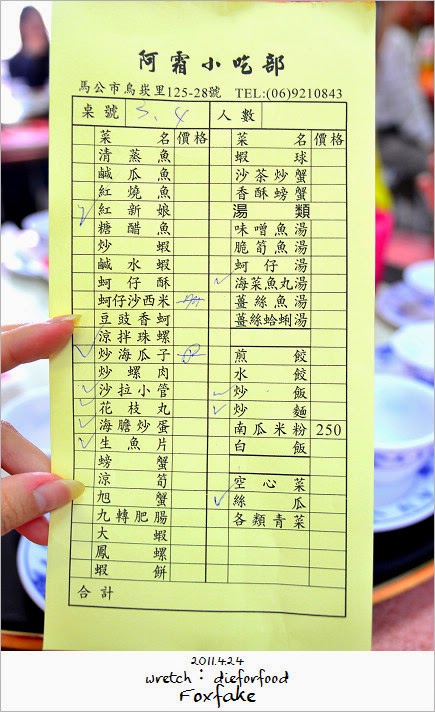 阿霜小吃部
馬公市烏崁里125-28號 TEL:(06)9210843
桌號 3、4 人數
菜名 價格
清蒸魚
鹹瓜魚
紅燒魚
紅新娘
糖醋魚
炒蝦
鹹水蝦
蚵仔酥
蚵仔沙西米
豆豉香蚵
涼拌珠螺
炒海瓜子
炒螺肉
沙拉小管
花枝丸
海膽炒蛋
生魚片
螃蟹
涼筍
旭蟹
九轉肥腸
大蝦
鳳螺
蝦餅
合計
菜名 價格
蝦球
沙茶炒蟹
香酥螃蟹
湯類
味噌魚湯
脆筍魚湯
蚵仔湯
海菜魚丸湯
薑絲魚湯
薑絲蛤蜊湯
煎餃
水餃
炒飯
炒麵
南瓜米粉 250
白飯
空心菜
絲瓜
各類青菜
2011.4.24
wretch：dieforfood
Foxfake